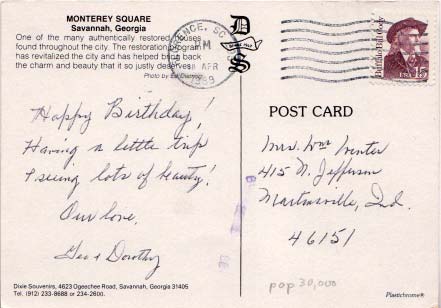 MONTEREY SQUARE
Savannah, Georgia
One of the many authentically restored houses
found throughout the city. The restoration program
has revitalized the city and has helped bring back
the charm and beauty that it so justly deserves.
Photo by Ed
Happy Birthday!
Having a little trip
& seeing lots of beauty!
Our love,
Geo & Dorothy
Dixie Souvenirs, 4623 Ogeechee Road, Savannah, Georgia 31405
Tel. (912) 233-8688 or 234-2600.
D
S
FLORENCE, SC
PM
APR
1989
Buffalo Bill Cody
USA 15
POST CARD
Mrs. Wm
415 N. Jefferson
Martinsville, Ind.
46151
pop 30,000
Plastichrome®